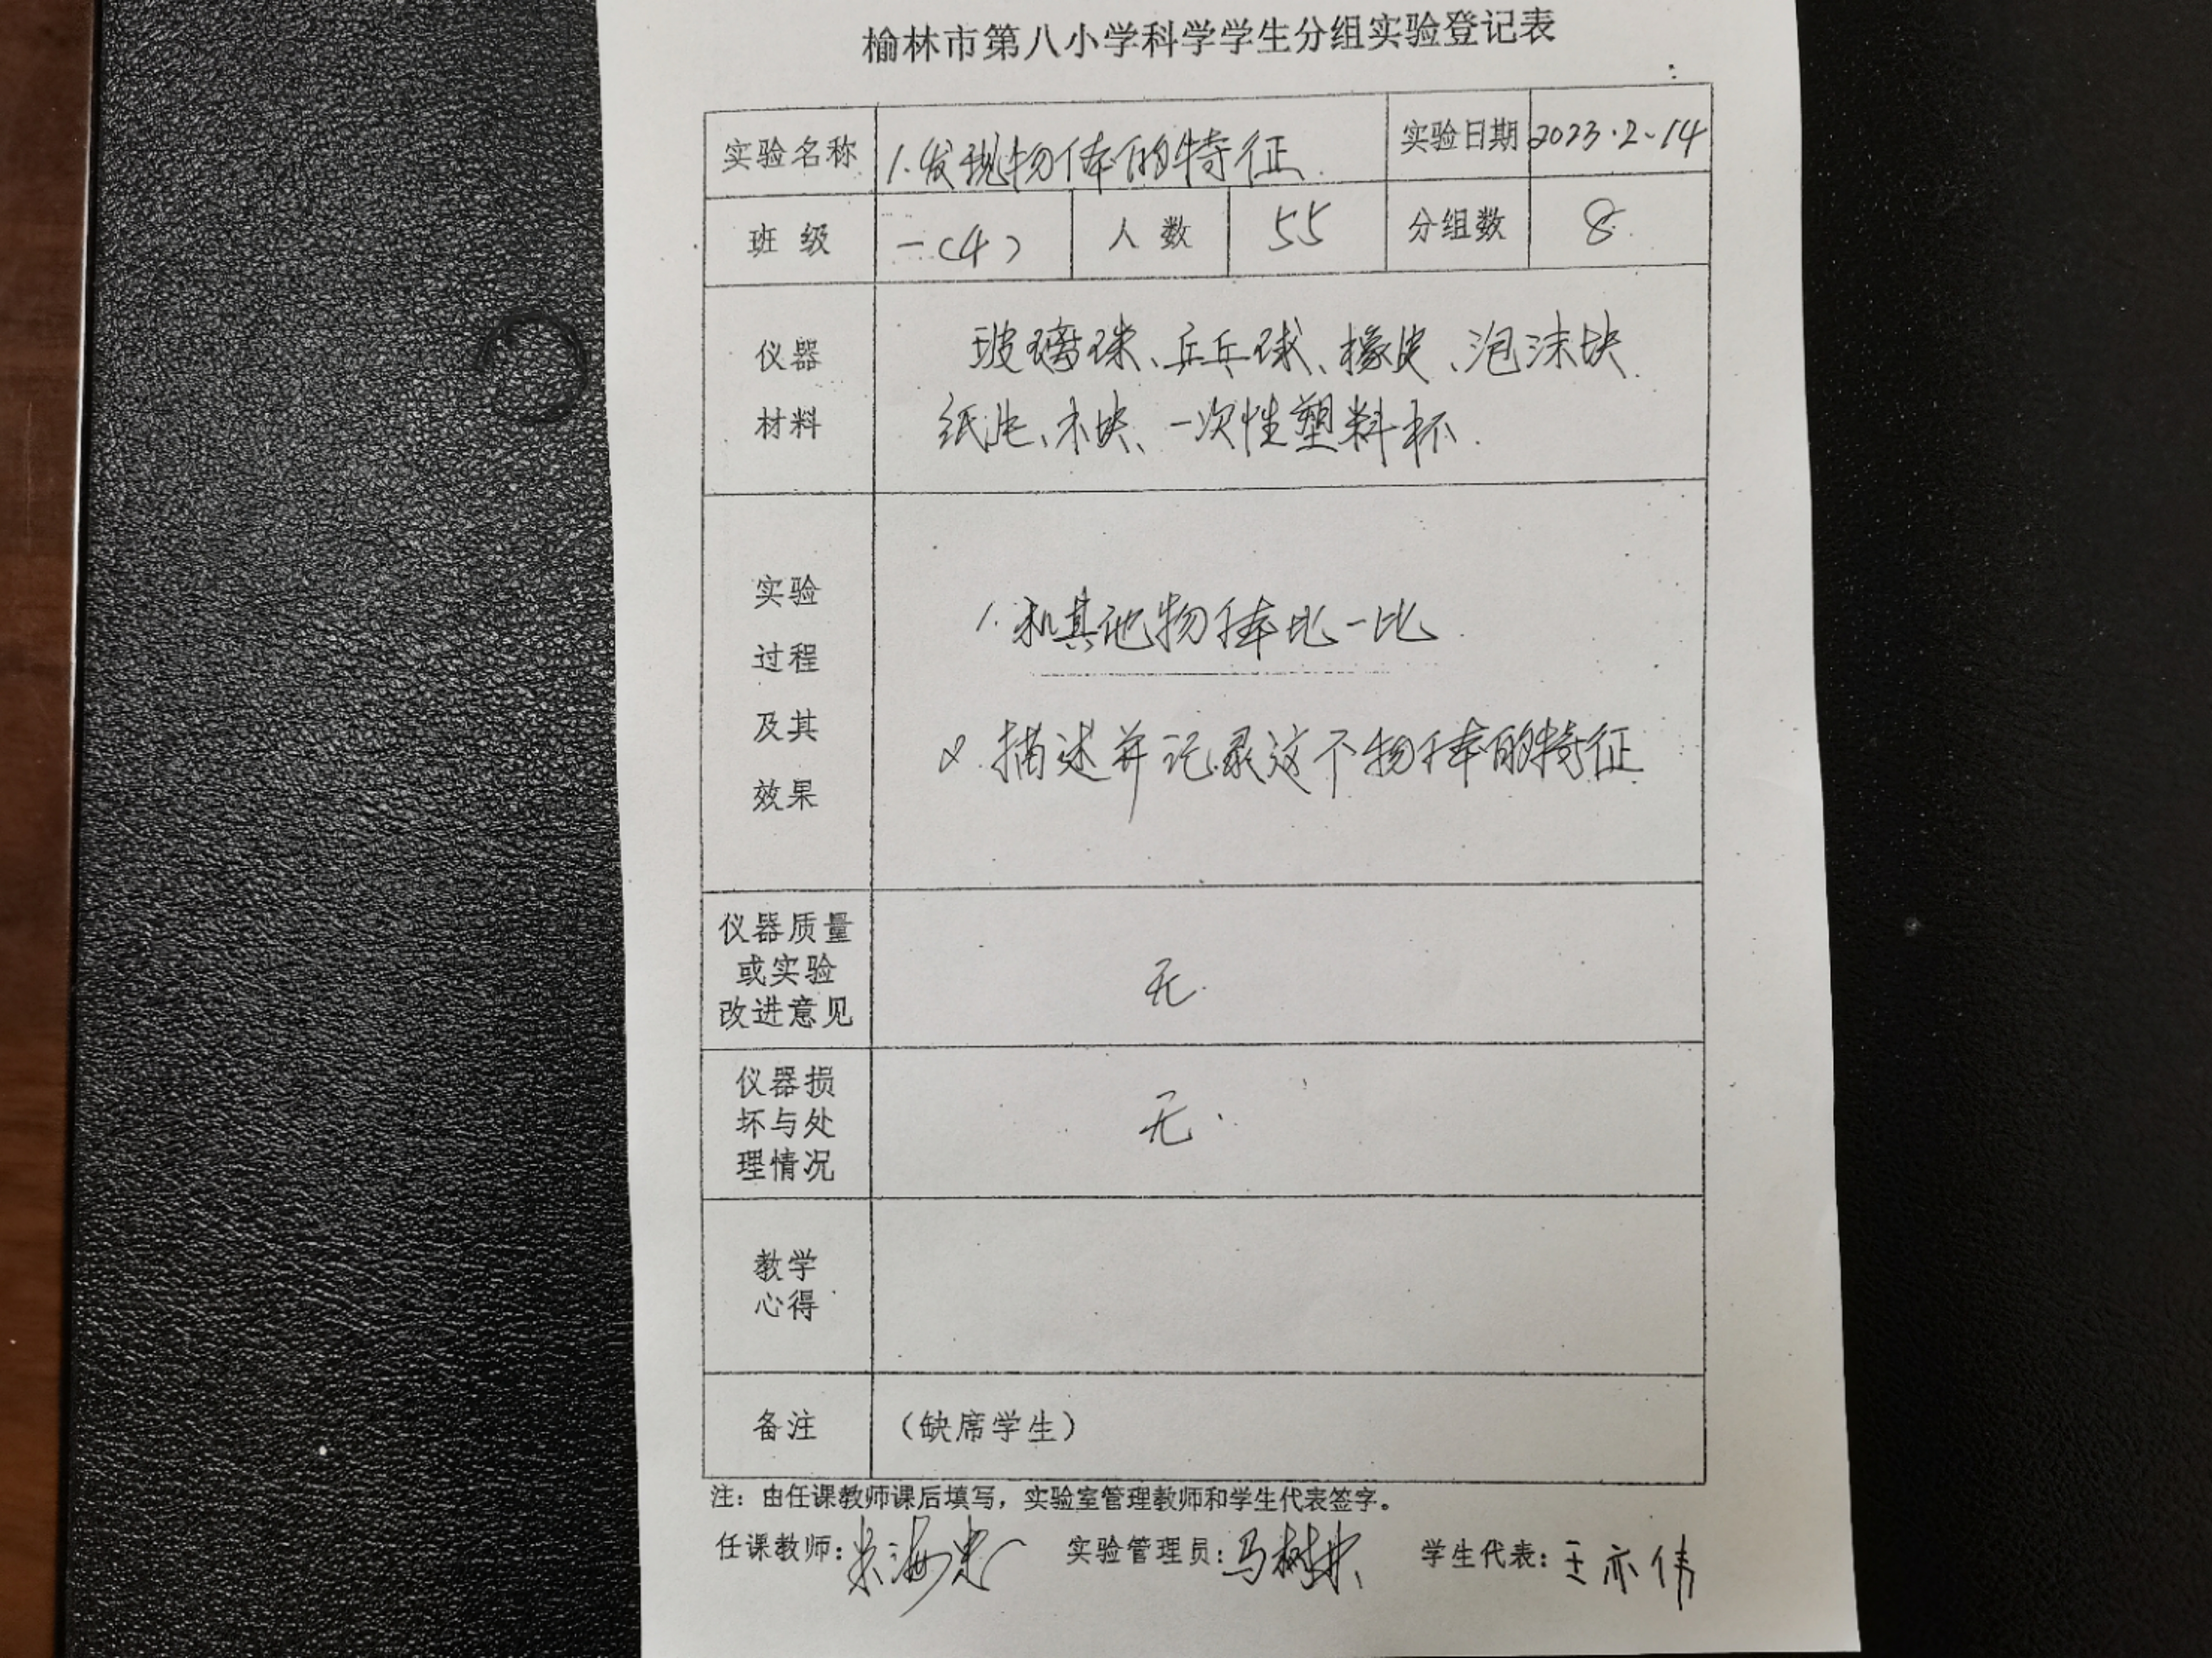 榆林市第八小学科学学生分组实验登记表
实验名称 1.发现物体的特征. 实验日期 2023.2-14
班级 一(4) 人数 55 分组数 8.
仪器
材料
玻璃球、乒乓球、橡皮、泡沫块.
纸片、木块、一次性塑料杯.
实验
过程
及其
效果
1.和其他物体比一比.
2.描述并记录这个物体的特征
仪器质量
或实验
改进意见
无.
仪器损
坏与处
理情况
无.
教学
心得
备注 (缺席学生)
注：由任课教师课后填写，实验室管理教师和学生代表签字。
任课教师: 实验管理员: 马树 学生代表: 王亦伟